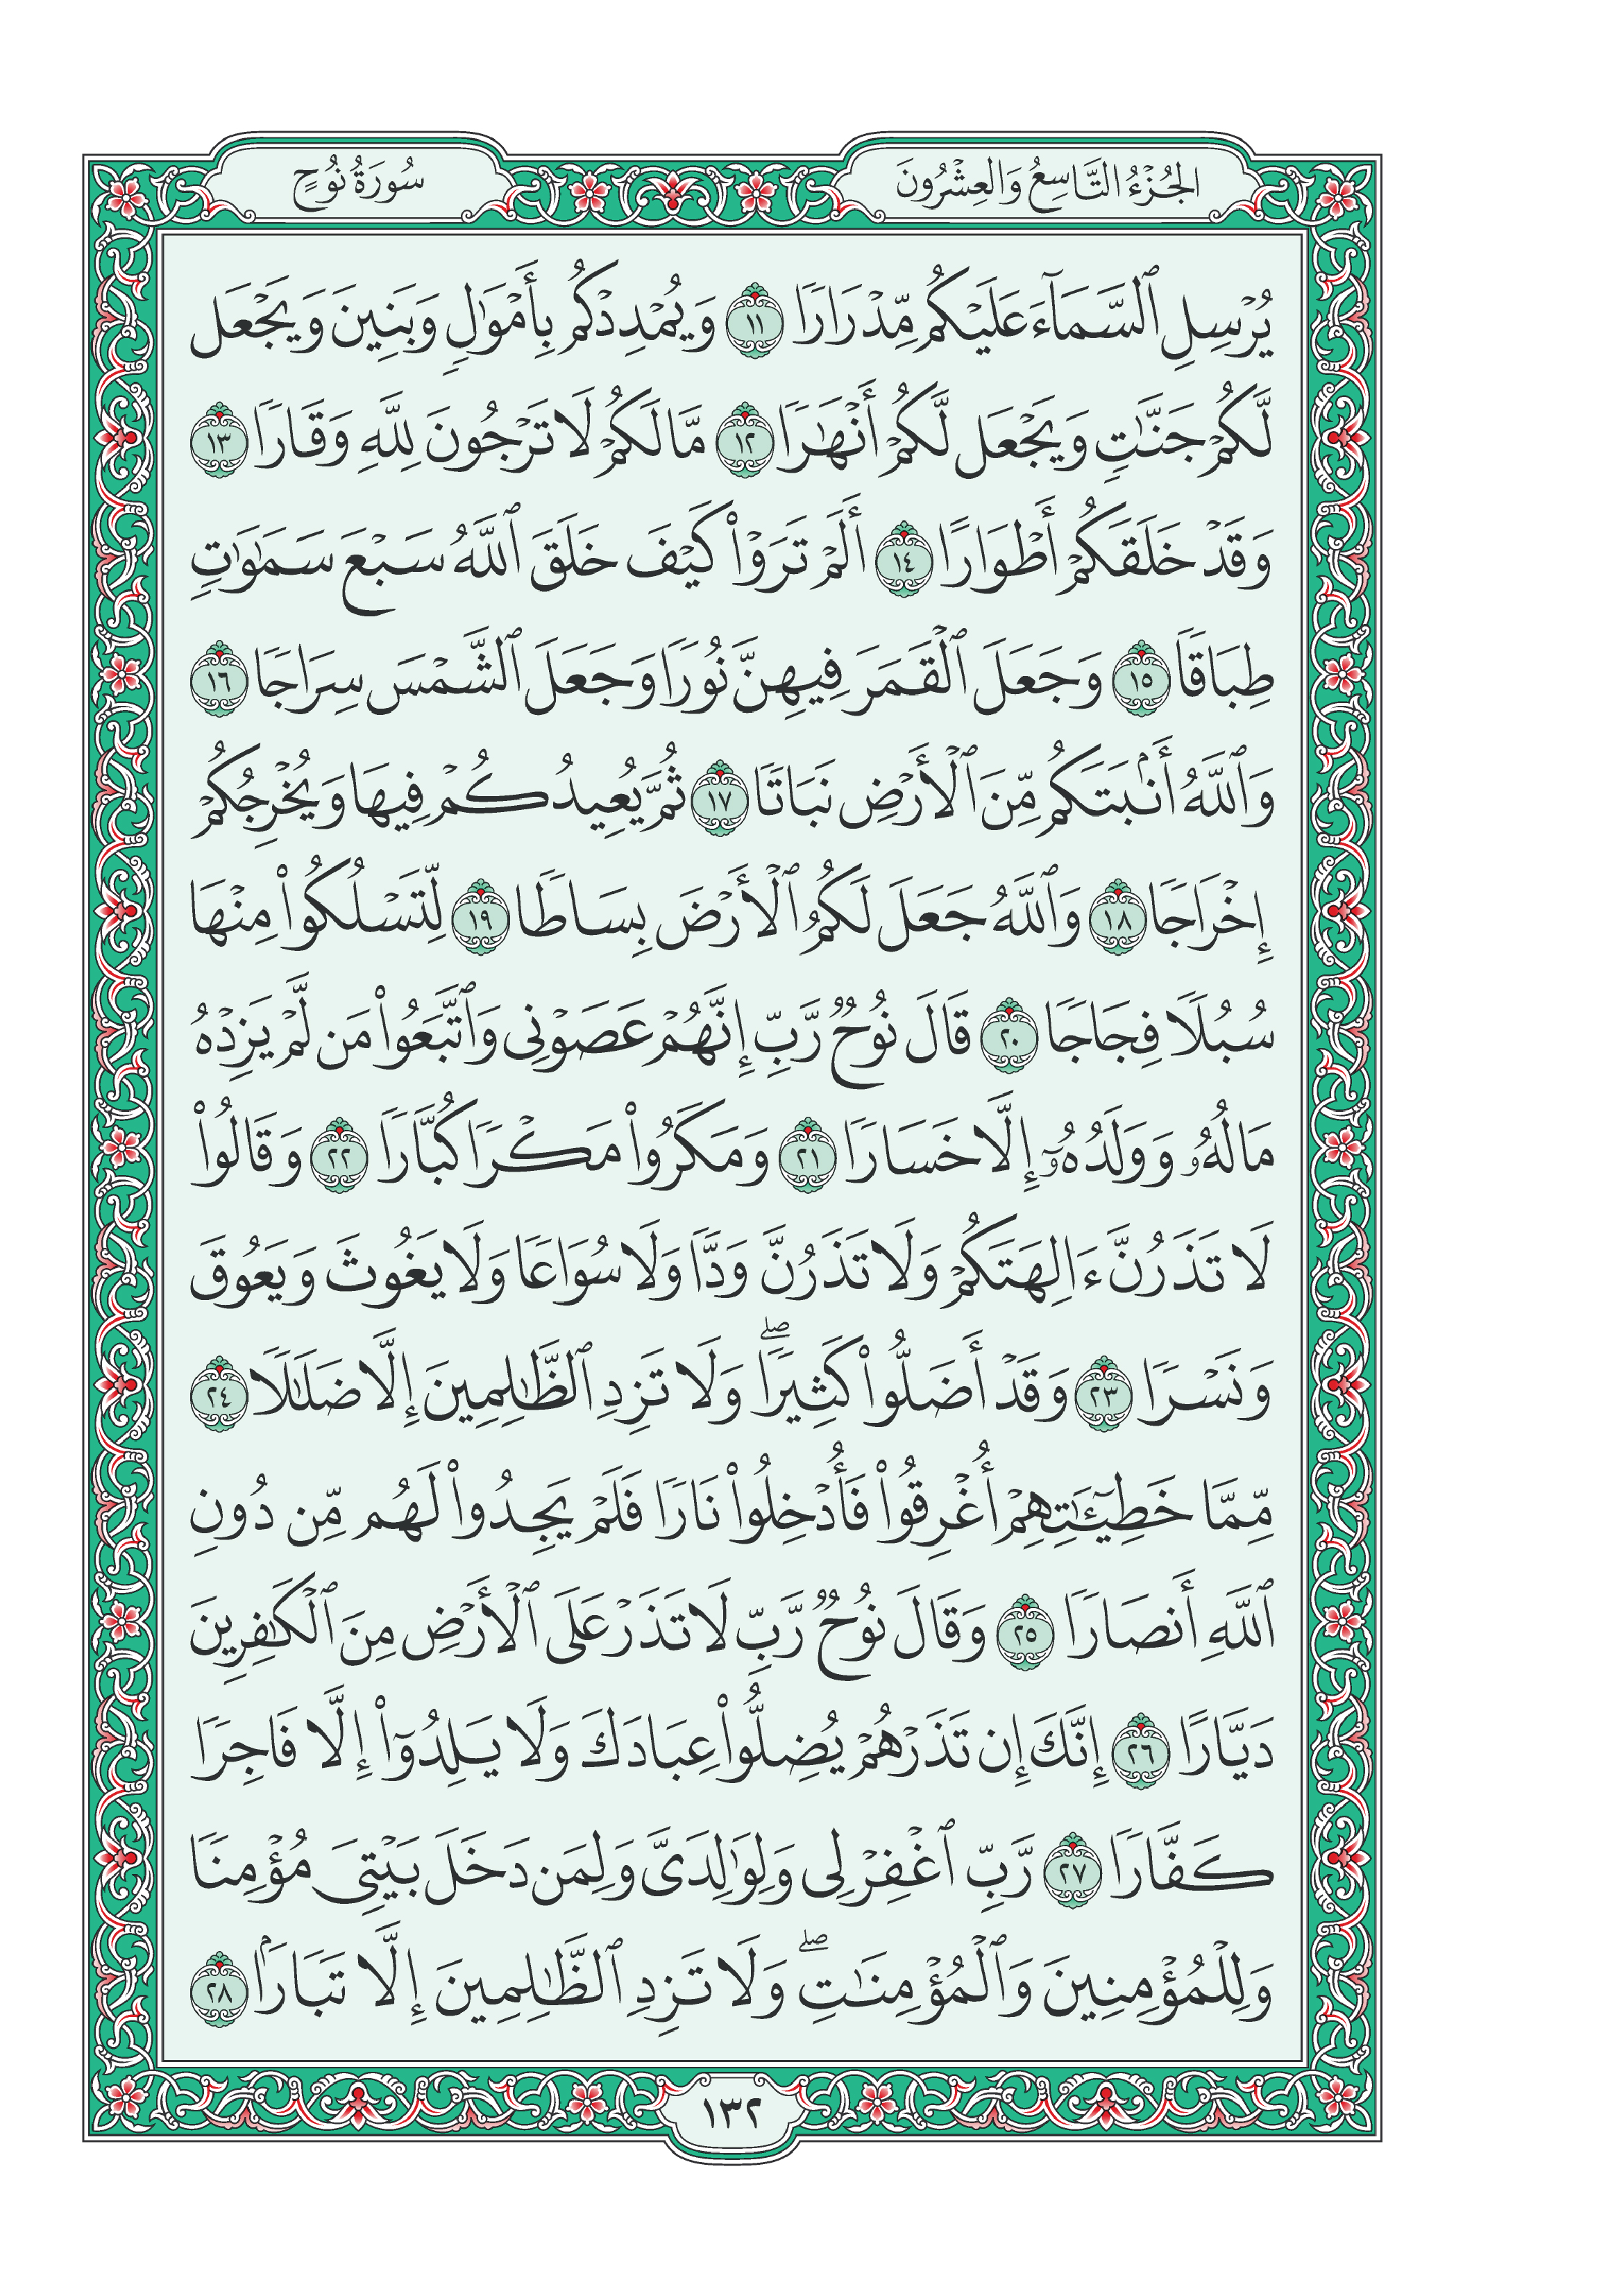 الجُزْءُ التَّاسِعُ وَالعِشْرُونَ
سُورَةُ نُوحٍ
يُرْسِلِ ٱلسَّمَآءَ عَلَيْكُم مِّدْرَارًا ١١ وَيُمْدِدْكُم بِأَمْوَٰلٍ وَبَنِينَ وَيَجْعَل
لَّكُمْ جَنَّٰتٍ وَيَجْعَل لَّكُمْ أَنْهَٰرًا ١٢ مَّا لَكُمْ لَا تَرْجُونَ لِلَّهِ وَقَارًا ١٣
وَقَدْ خَلَقَكُمْ أَطْوَارًا ١٤ أَلَمْ تَرَوْا۟ كَيْفَ خَلَقَ ٱللَّهُ سَبْعَ سَمَٰوَٰتٍ
طِبَاقًا ١٥ وَجَعَلَ ٱلْقَمَرَ فِيهِنَّ نُورًا وَجَعَلَ ٱلشَّمْسَ سِرَاجًا ١٦
وَٱللَّهُ أَنۢبَتَكُم مِّنَ ٱلْأَرْضِ نَبَاتًا ١٧ ثُمَّ يُعِيدُكُمْ فِيهَا وَيُخْرِجُكُمْ
إِخْرَاجًا ١٨ وَٱللَّهُ جَعَلَ لَكُمُ ٱلْأَرْضَ بِسَاطًا ١٩ لِّتَسْلُكُوا۟ مِنْهَا
سُبُلًا فِجَاجًا ٢٠ قَالَ نُوحٌ رَّبِّ إِنَّهُمْ عَصَوْنِى وَٱتَّبَعُوا۟ مَن لَّمْ يَزِدْهُ
مَالُهُۥ وَوَلَدُهُۥٓ إِلَّا خَسَارًا ٢١ وَمَكَرُوا۟ مَكْرًا كُبَّارًا ٢٢ وَقَالُوا۟
لَا تَذَرُنَّ ءَالِهَتَكُمْ وَلَا تَذَرُنَّ وَدًّا وَلَا سُوَاعًا وَلَا يَغُوثَ وَيَعُوقَ
وَنَسْرًا ٢٣ وَقَدْ أَضَلُّوا۟ كَثِيرًا ۖ وَلَا تَزِدِ ٱلظَّٰلِمِينَ إِلَّا ضَلَٰلًا ٢٤
مِّمَّا خَطِيٓـَٰٔتِهِمْ أُغْرِقُوا۟ فَأُدْخِلُوا۟ نَارًا فَلَمْ يَجِدُوا۟ لَهُم مِّن دُونِ
ٱللَّهِ أَنصَارًا ٢٥ وَقَالَ نُوحٌ رَّبِّ لَا تَذَرْ عَلَى ٱلْأَرْضِ مِنَ ٱلْكَٰفِرِينَ
دَيَّارًا ٢٦ إِنَّكَ إِن تَذَرْهُمْ يُضِلُّوا۟ عِبَادَكَ وَلَا يَلِدُوٓا۟ إِلَّا فَاجِرًا
كَفَّارًا ٢٧ رَّبِّ ٱغْفِرْ لِى وَلِوَٰلِدَىَّ وَلِمَن دَخَلَ بَيْتِىَ مُؤْمِنًا
وَلِلْمُؤْمِنِينَ وَٱلْمُؤْمِنَٰتِ ۖ وَلَا تَزِدِ ٱلظَّٰلِمِينَ إِلَّا تَبَارًۢا ٢٨
١٣٢